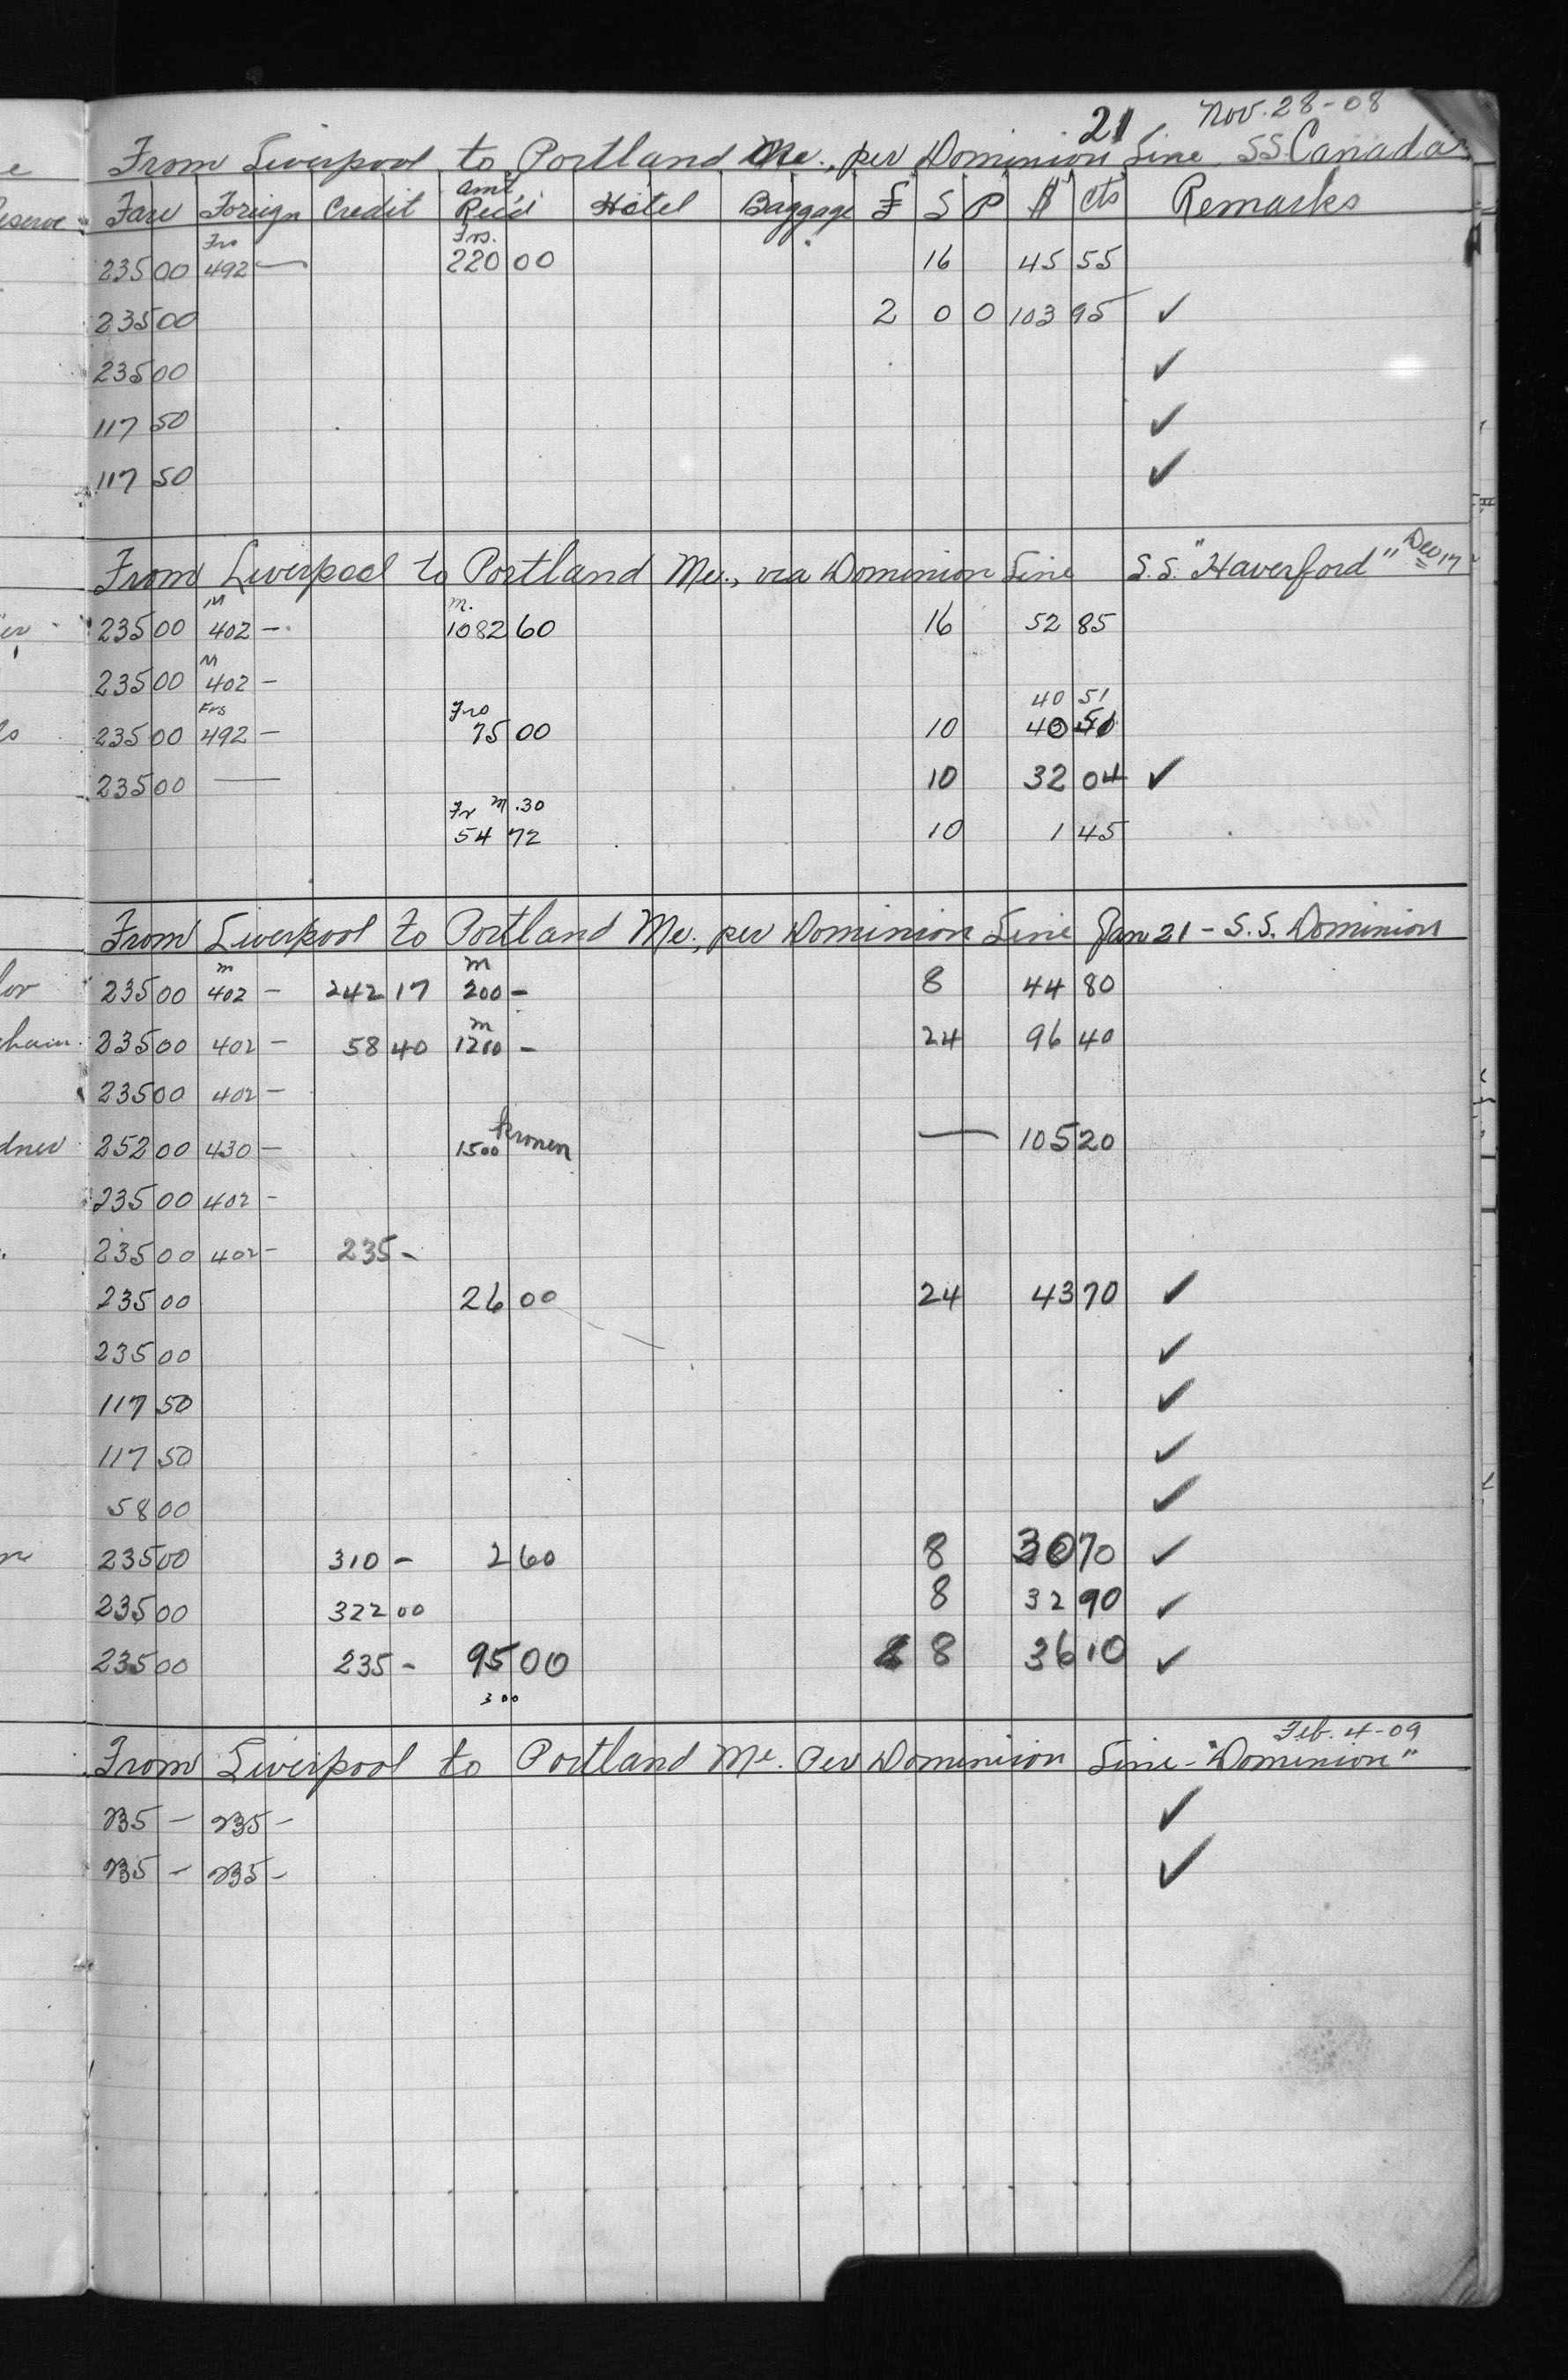 21 Nov. 28-08
From Liverpool to Portland Me., per Dominion Line SS. Canada
Fare Foreign Credit Amt Rec'd Hotel Baggage £ S P $ cts Remarks
Frs Frs.
235 00 492 — 220 00 16 45 55
235 00 2 0 0 103 95 ✓
235 00 ✓
117 50 ✓
117 50 ✓
From Liverpool to Portland Me., via Dominion Line S.S. "Haverford" Dec 17
M m.
235 00 402 - 1082 60 16 52 85
M
235 00 402 -
Frs Frs 40 51
235 00 492 - 75 00 10 40 51
235 00 — 10 32 04 ✓
Fr M .30
54 72 10 1 45
From Liverpool to Portland Me., per Dominion Line Jan 21 - S.S. Dominion
m m
235 00 402 - 242 17 200 - 8 44 80
m
235 00 402 - 58 40 1200 - 24 96 40
235 00 402 -
252 00 430 - 1500 kronen — 105 20
235 00 402 -
235 00 402 - 235 -
235 00 26 00 24 43 70 ✓
235 00 ✓
117 50 ✓
117 50 ✓
58 00 ✓
235 00 310 - 2 60 8 30 70 ✓
235 00 322 00 8 32 90 ✓
235 00 235 - 95 00 8 36 10 ✓
3 00
Feb. 4-09
From Liverpool to Portland Me. Per Dominion Line - "Dominion"
235 - 235 - ✓
235 - 235 - ✓